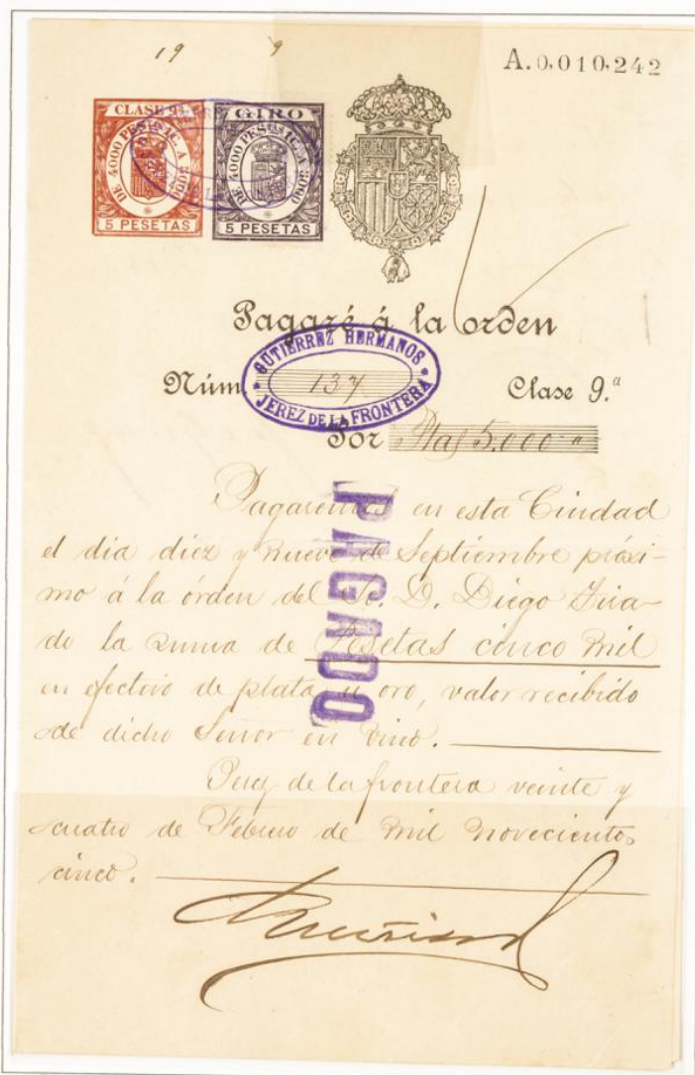 19 9
A.0,010,242
CLASE 9ª
GIRO
DE 4000 PESˢ IC. A 5000
DE 4000 PESˢ IC. A 5000
5 PESETAS
5 PESETAS
Pagaré á la orden
GUTIERREZ HERMANOS
Núm. 137 Clase 9.ª
JEREZ DE LA FRONTERA
Por Ptas 5.000
Pagaremos en esta Ciudad
el dia diez y nueve de Septiembre próxi-
mo á la órden del Sr. D. Diego
do la suma de Pesetas cinco mil
en efectivo de plata u oro, valor recibido
de dicho Señor en vino.
PAGADO
Jerez de la frontera veinte y
cuatro de Febrero de mil novecientos
cinco.